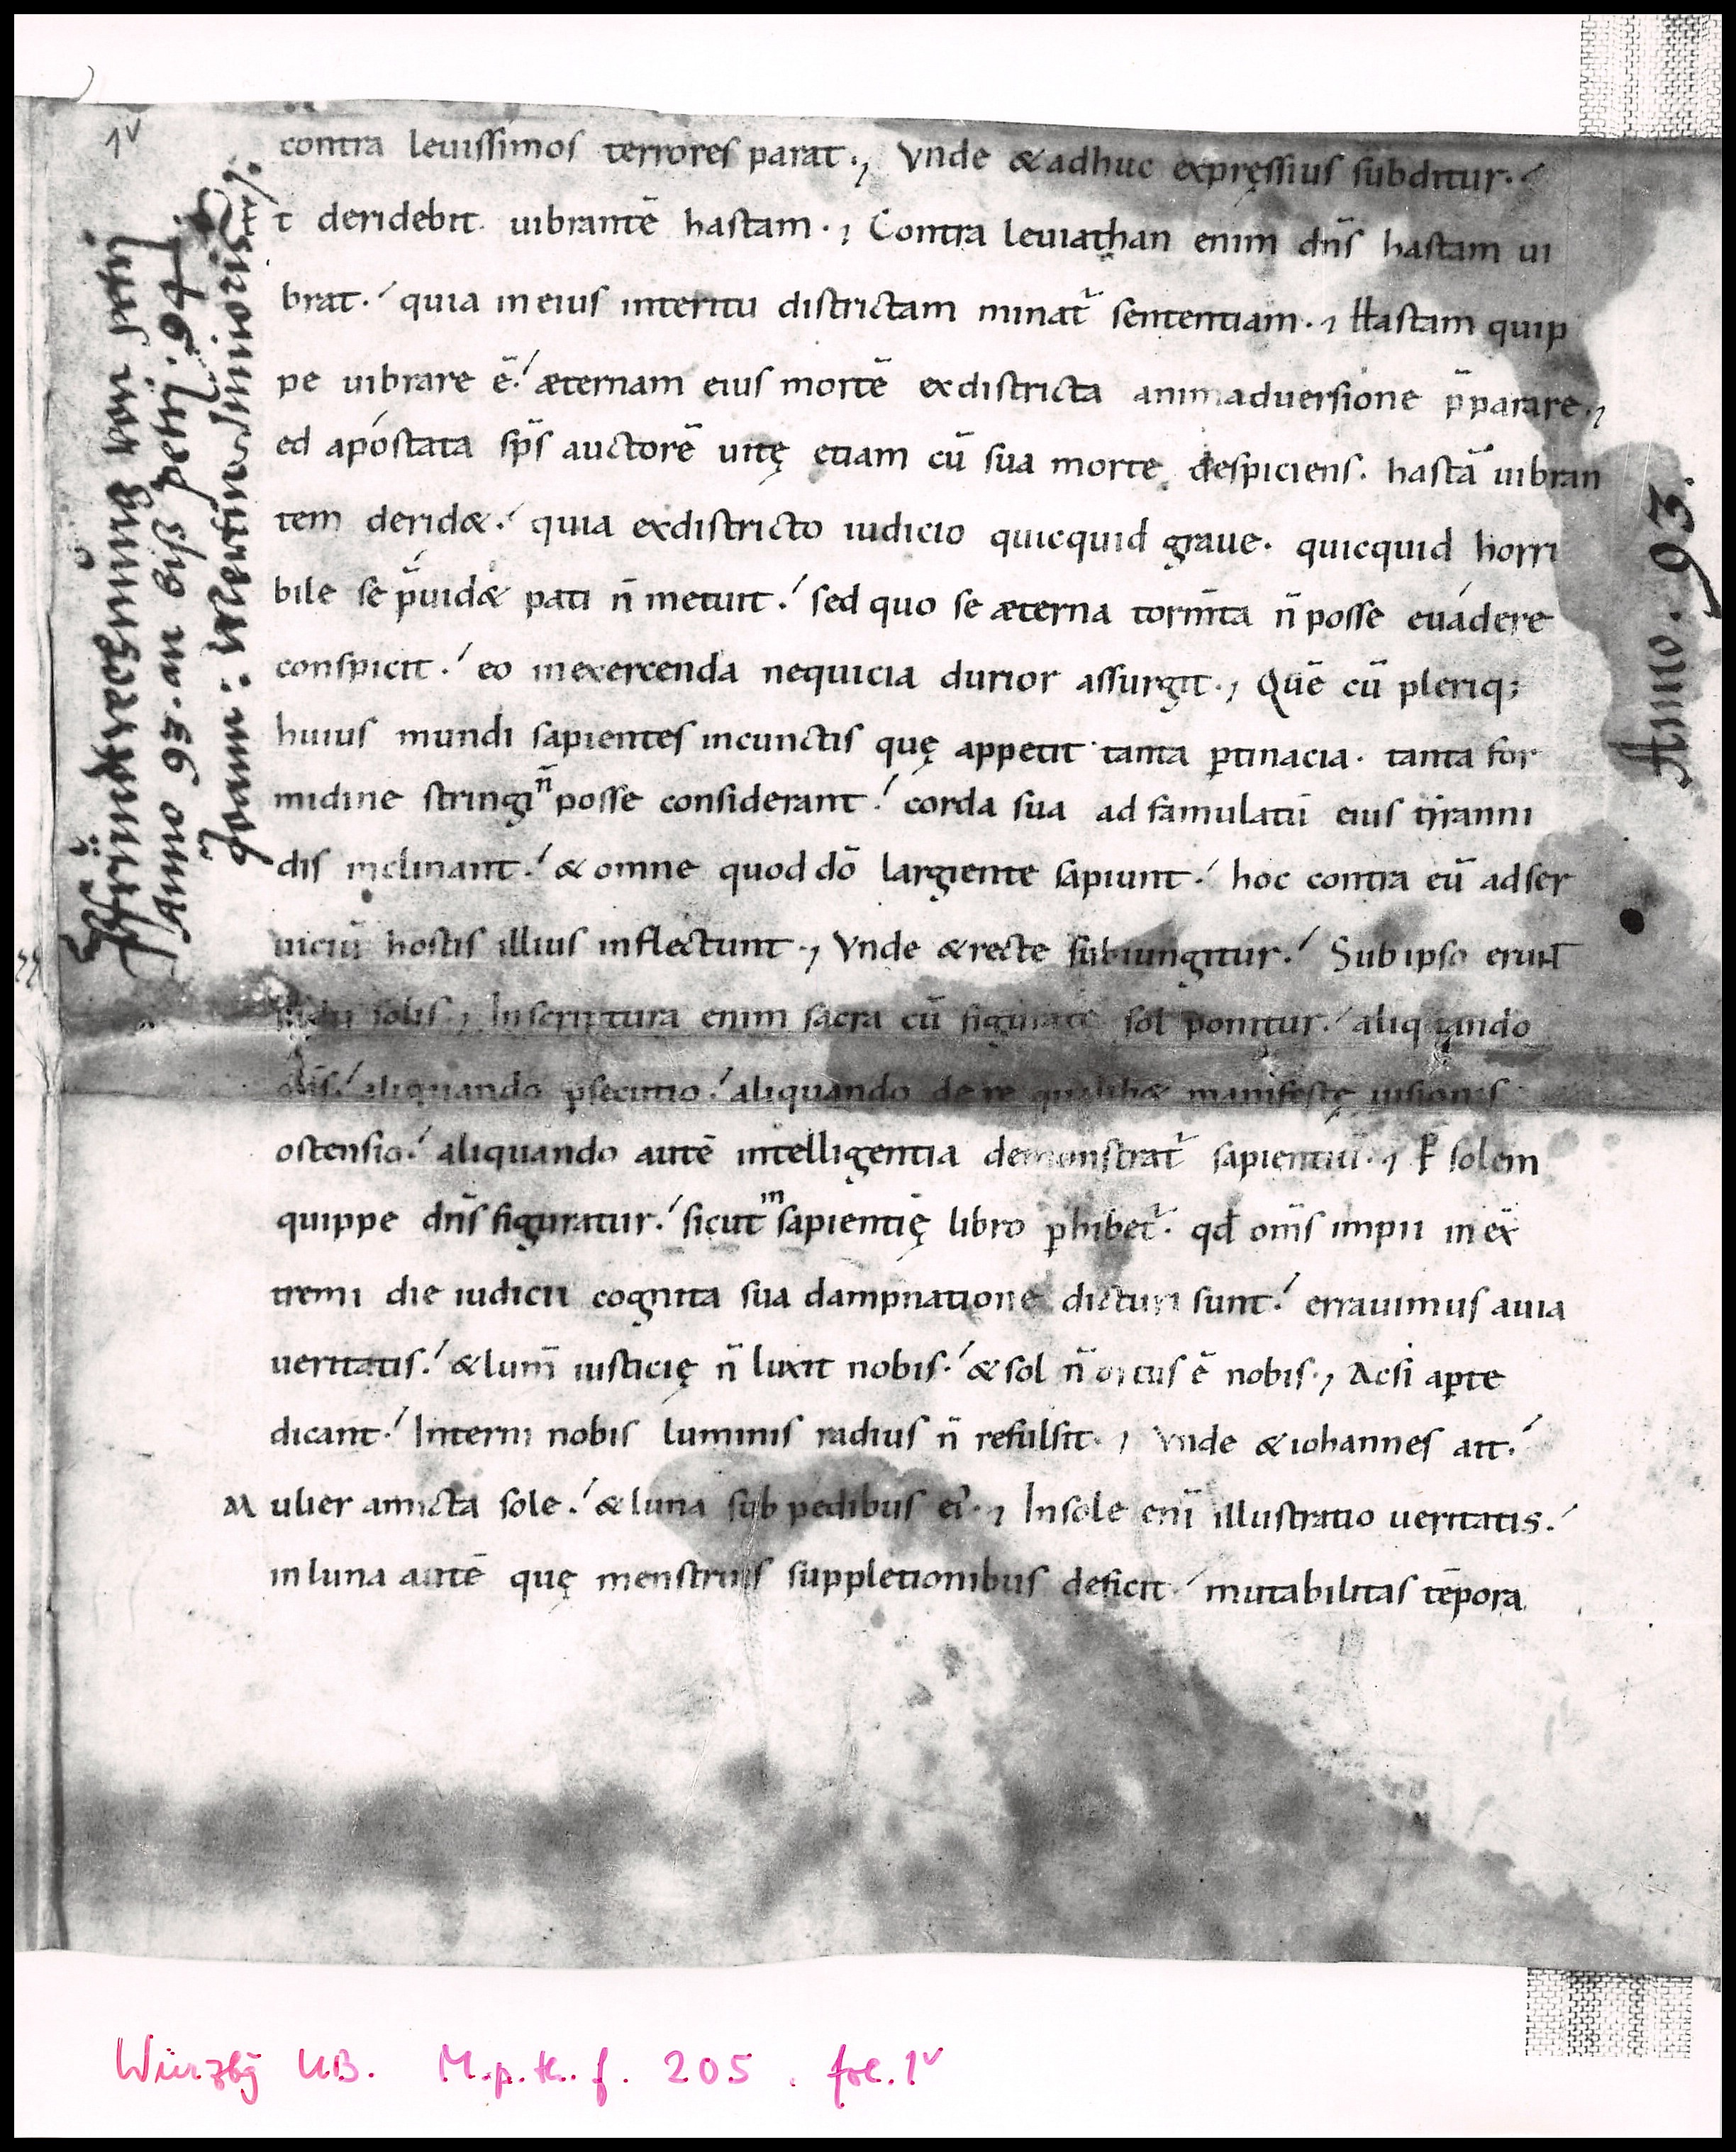 1v
contra leuissimos terrores parat., Vnde & adhuc expręssius subditur.
t deridebit uibrantē hastam., Contra leuiathan enim dn̄s hastam ui
brat. quia in eius interitu districtam minat᷑ sententiam., Hastam quip
pe uibrare ē. æternam eius mortē ex districta animaduersione p̄parare.,
ed apóstata sp̄s auctorē uitę etiam cū sua morte despiciens. hastā uibran
tem derid&. quia ex districto iudicio quicquid graue. quicquid horri
bile se p̄uid& pati n̄ metuit. sed quo se æterna torm̄ta n̄ posse euádere
conspicit. eo in exercenda nequicia durior assurgit., Quē cū pleriq;
huius mundi sapientes in cunctis quę appetit tanta ꝑtinacia. tanta for
midine stringi n̄ posse considerant. corda sua ad famulatū eius tẏranni
dis inclinant. & omne quod dō largiente sapiunt. hoc contra eū ad ser
uiciū hostis illius inflectunt., Vnde & recte subiungitur. Sub ipso erunt
radii solis., In scriptura enim sacra cū figurate sol ponitur. aliquando
dn̄s. aliquando ꝑsecutio. aliquando de re qualib& manifestę uisionis
ostensio. aliquando autē intelligentia demonstrat᷑ sapientiū., P solem
quippe dn̄s figuratur. sicut in sapientię libro ꝑhibet᷑. qd̄ om̄s impii in ex
tremi die iudicii cognita sua dampnatione dicturi sunt. errauimus a uia
ueritatis. & lum̄ iusticię n̄ luxit nobis. & sol n̄ ortus ē nobis., Ac si aꝑte
dicant. Interni nobis luminis radius n̄ refulsit., Vnde & iohannes ait.
M ulier amicta sole. & luna sub pedibus ei᷒., In sole enī illustratio ueritatis.
in luna autē quę menstruis suppletionibus deficit. mutabilitas tēpora
Anno 93. an biß petrj. 94.
Anno. 93.
Würzbg UB. M.p.th.f. 205. fol. 1v